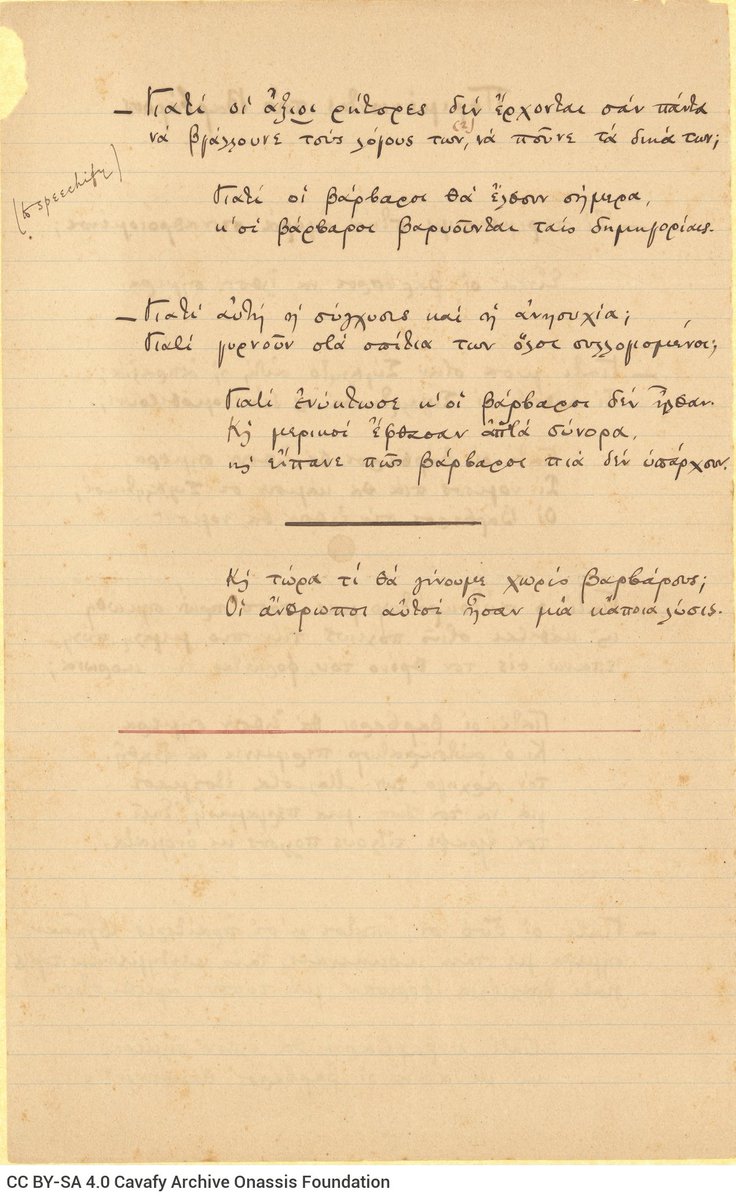 — Γιατί οἱ ἄξιοι ρήτορες δέν ἔρχονται σάν πάντα
νά βγάλλουνε τούς λόγους των, νά ποῦνε τά δικά των;
(to speechify)
Γιατί οἱ βάρβαροι θά ἔλθουν σήμερα,
κ' οἱ βάρβαροι βαρυοῦνται ταίς δημηγορίαις.
— Γιατί αὐτή ἡ σύγχυσις καί ἡ ἀνησυχία;
Γιατί γυρνοῦν στά σπίτια των ὅλοι συλλογισμένοι;
Γιατί ἐνύκτωσε κ' οἱ βάρβαροι δέν ἦλθαν.
Κῃ μερικοί ἔφθασαν ἀπ' τά σύνορα,
κῃ εἴπανε πῶς βάρβαροι πιά δέν ὑπάρχουν.
Κῃ τώρα τί θά γίνουμε χωρίς βαρβάρους;
Οἱ ἄνθρωποι αὐτοί ἦσαν μιά κἄποια λύσις.
CC BY-SA 4.0 Cavafy Archive Onassis Foundation